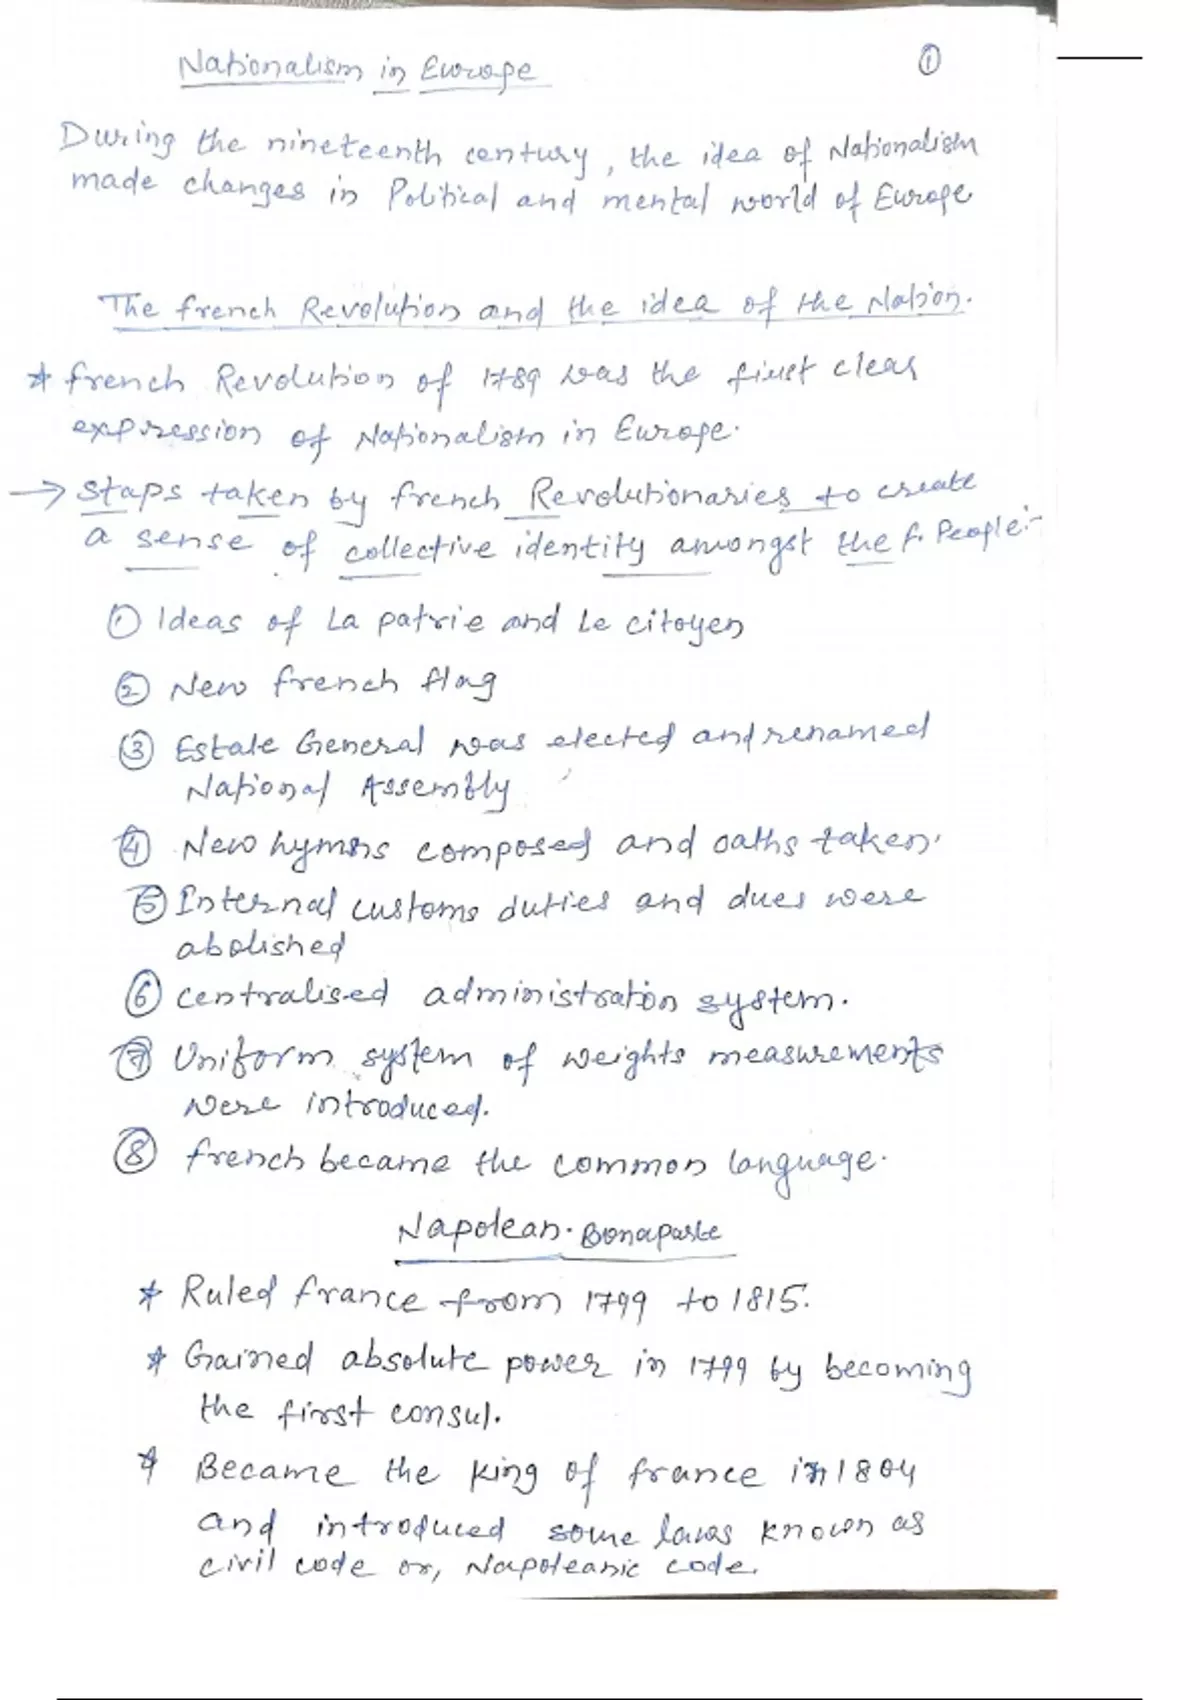 Nationalism in Europe
①
During the nineteenth century, the idea of Nationalism
made changes in Political and mental world of Europe
The french Revolution and the idea of the Nation.
* french Revolution of 1789 was the first clear
expression of Nationalism in Europe.
→ Staps taken by french Revolutionaries to create
a sense of collective identity amongst the f. People:-
① Ideas of La patrie and Le citoyen
② New french flag
③ Estate General was elected and renamed
National Assembly
④ New hymns composed and oaths taken.
⑤ Internal customs duties and dues were
abolished
⑥ centralised administration system.
⑦ Uniform system of weights measurements
were introduced.
⑧ french became the common language.
Napolean. Bonaparte
* Ruled france from 1799 to 1815.
* Gained absolute power in 1799 by becoming
the first consul.
* Became the king of france in 1804
and introduced some laws known as
civil code or, Napoleanic code.